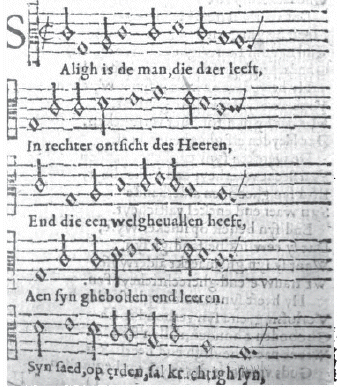 SAligh is de man, die daer leeft,
In rechter ontsicht des Heeren,
End die een welgheuallen heeft,
Aen syn gheboden end leeren.
Syn saed, op erden, sal krachtigh syn,